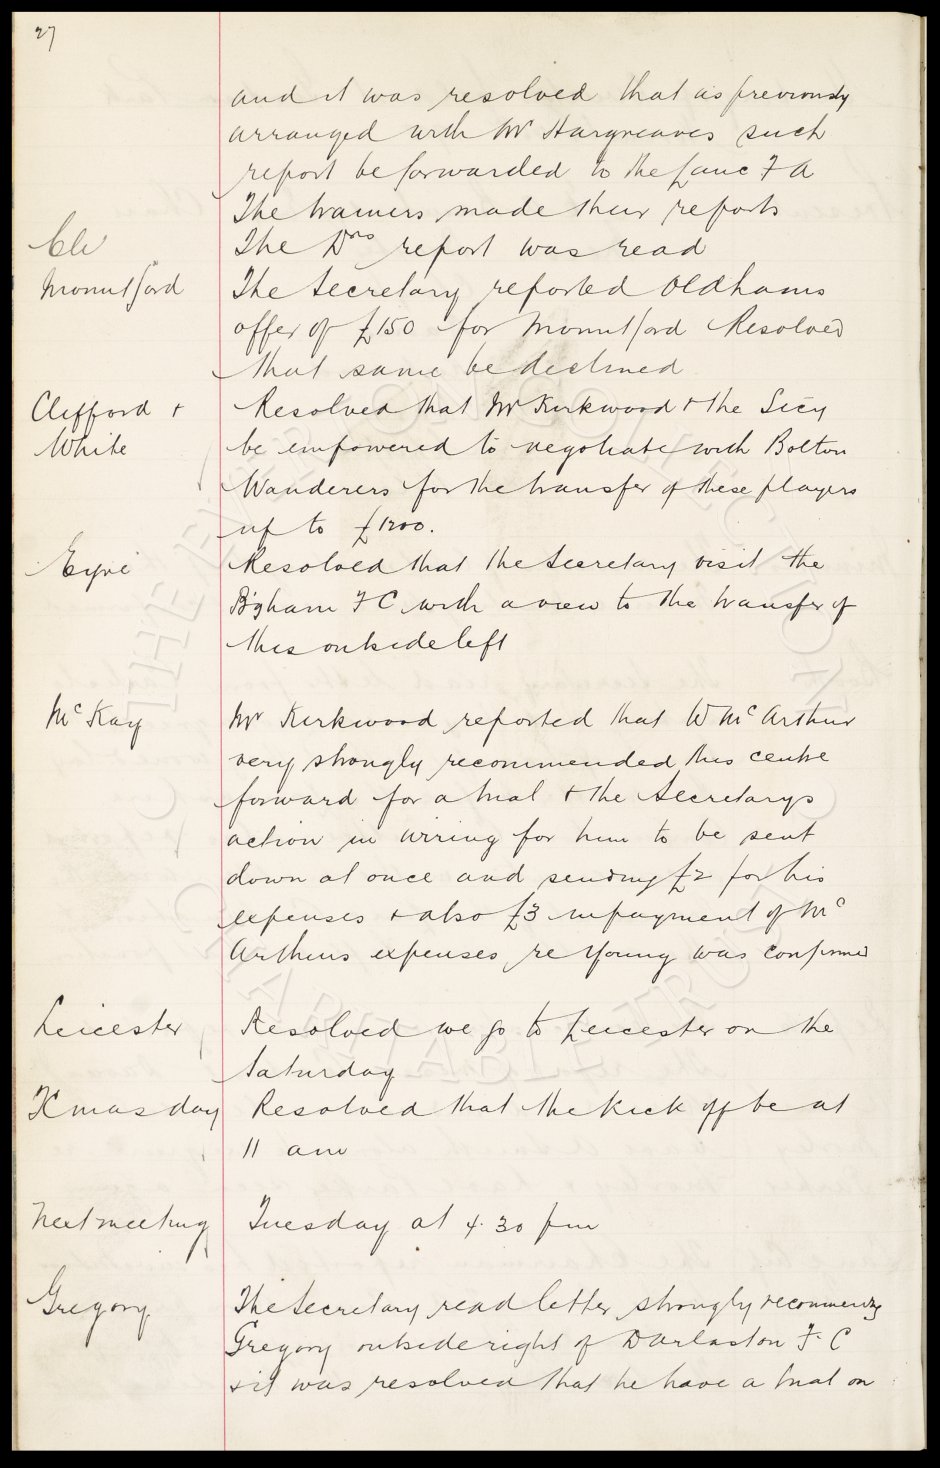 27
and it was resolved that as previously
arranged with Mr Hargreaves such
report be forwarded to the Lanc F A
The trainers made their reports
The Drs report was read
Mountford The Secretary reported Oldhams
offer of £150 for Mountford Resolved
that same be declined
Clifford + Resolved that Mr Kirkwood + the Secy
White be empowered to negotiate with Bolton
Wanderers for the transfer of these players
up to £1200.
Eyre Resolved that the Secretary visit the
B'gham F C with a view to the transfer of
this outside left
McKay Mr Kirkwood reported that W McArthur
very strongly recommended this centre
forward for a trial + the Secretarys
action in wiring for him to be sent
down at once and sending £2 for his
expenses + also £3 in payment of Mc
Arthurs expenses re Young was confirmed
Leicester Resolved we go to Leicester on the
Saturday
Xmas day Resolved that the kick off be at
11 am
Next meeting Tuesday at 4.30 pm
Gregory The Secretary read letter strongly recommending
Gregory outside right of Darlaston F. C
+ it was resolved that he have a trial on
THE EVERTON COLLECTION
CHARITABLE TRUST